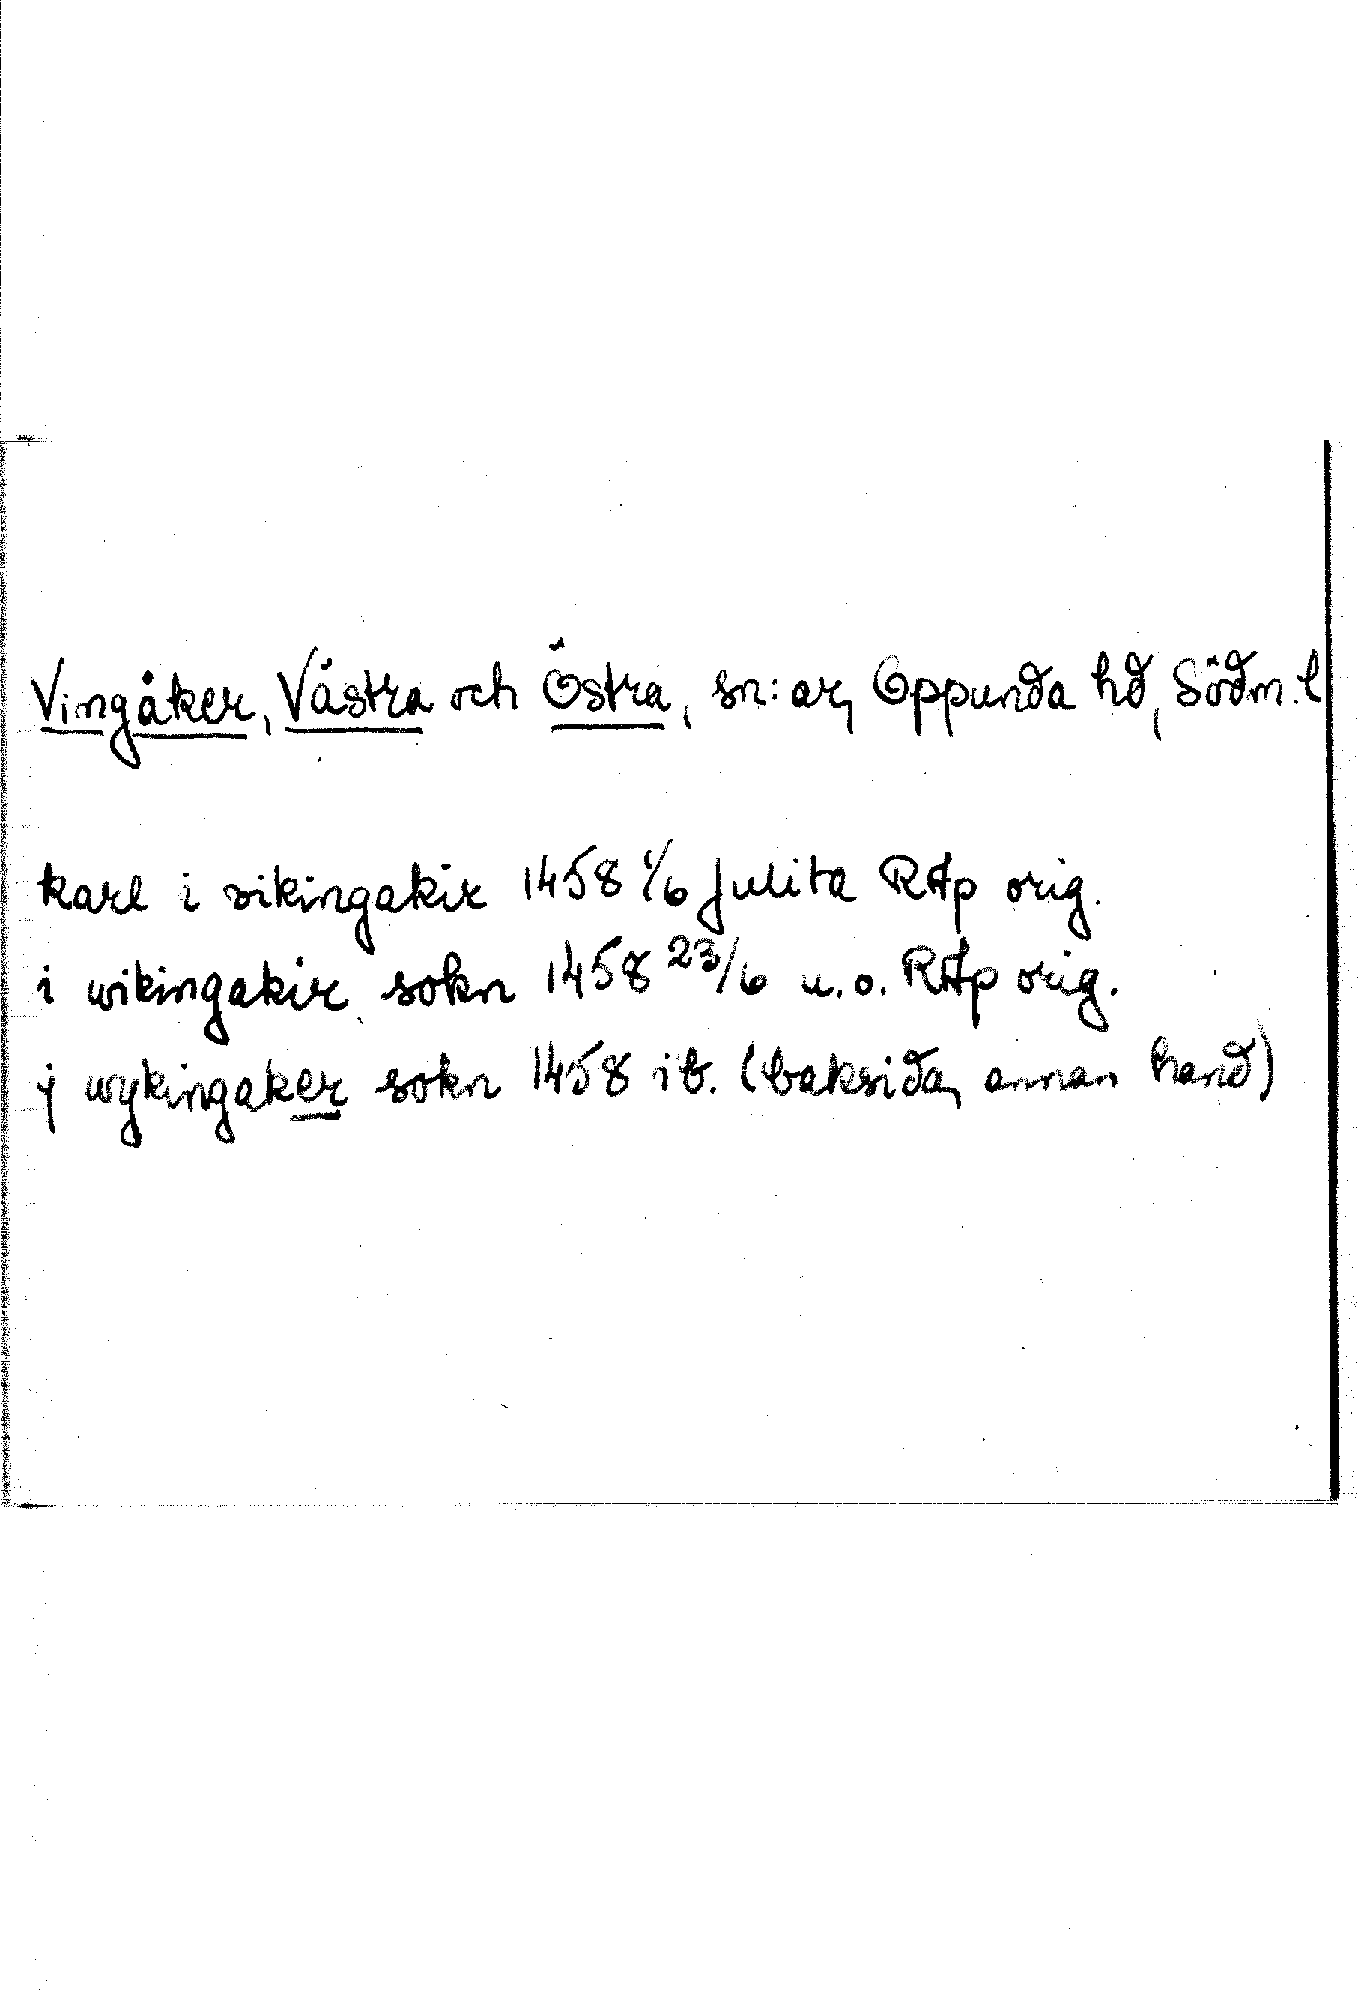 Vingåker, Västra och Östra, sn:ar, Oppunda hd, Södm. l
karl i vikingakir 1458 1/6 Julita RAp orig.
i wikingakir sokn 1458 23/6 u.o. RAp orig.
ij wykingaker sokn 1458 ib. (baksida, annan hand)